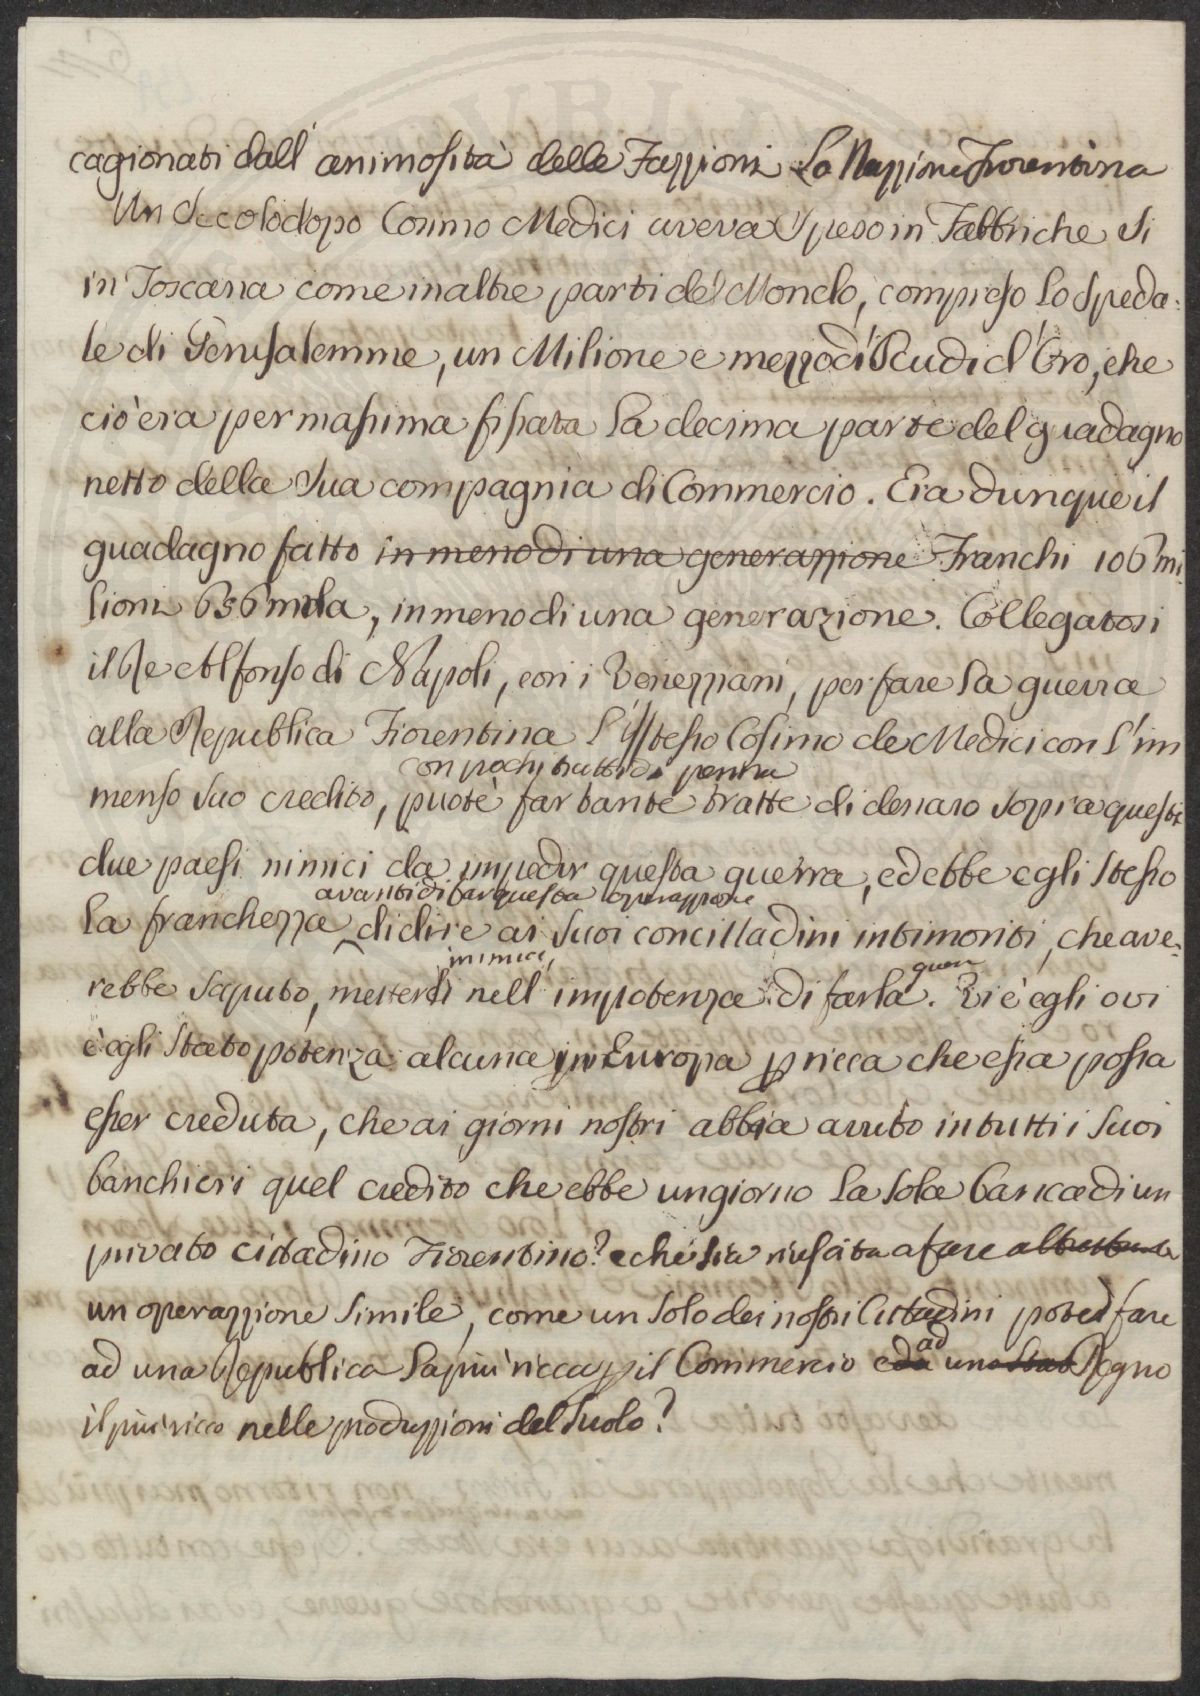 cagionati dall'animosità delle Fazzioni La Nazzione Fiorentina
Un Secolo dopo Cosimo Medici aveva speso in Fabbriche si
in Toscana come in altre parti del Mondo, compreso lo Speda-
le di Gerusalemme, un Milione e mezzo di Scudi d'Oro, che
ciò era per massima fissata la decima parte del guadagno
netto della sua compagnia di Commercio. Era dunque il
guadagno fatto in meno di una generazzione Franchi 106 mi-
lioni 656 mila, in meno di una generazione. Collegatosi
il Re Alfonso di Napoli, con i Venezziani, per fare la guerra
alla Republica Fiorentina l'istesso Cosimo de Medici con l'im
con pochi tratti di penna
menso suo credito, puotè far tante tratte di denaro sopra questi
due paesi nimici da impedir questa guerra, ed ebbe egli stesso
avanti di far questa operazzione
la franchezza di dire ai suoi concittadini intimoriti, che ave-
inimici, guerra
rebbe saputo, metterli nell'impotenza di farla. Vi è egli o vi
è egli stato potenza alcuna in Europa p ricca che essa possa
esser creduta, che ai giorni nostri abbia avuto in tutti i suoi
banchieri quel credito che ebbe un giorno la sola banca di un
privato cittadino Fiorentino? e che sia riuscita a fare
un operazzione simile, come un solo dei nostri Cittadini potea fare
ad
ad una Republica la più ricca p il Commercio e da uno Stato Regno
il più ricco nelle produzzioni del Suolo?